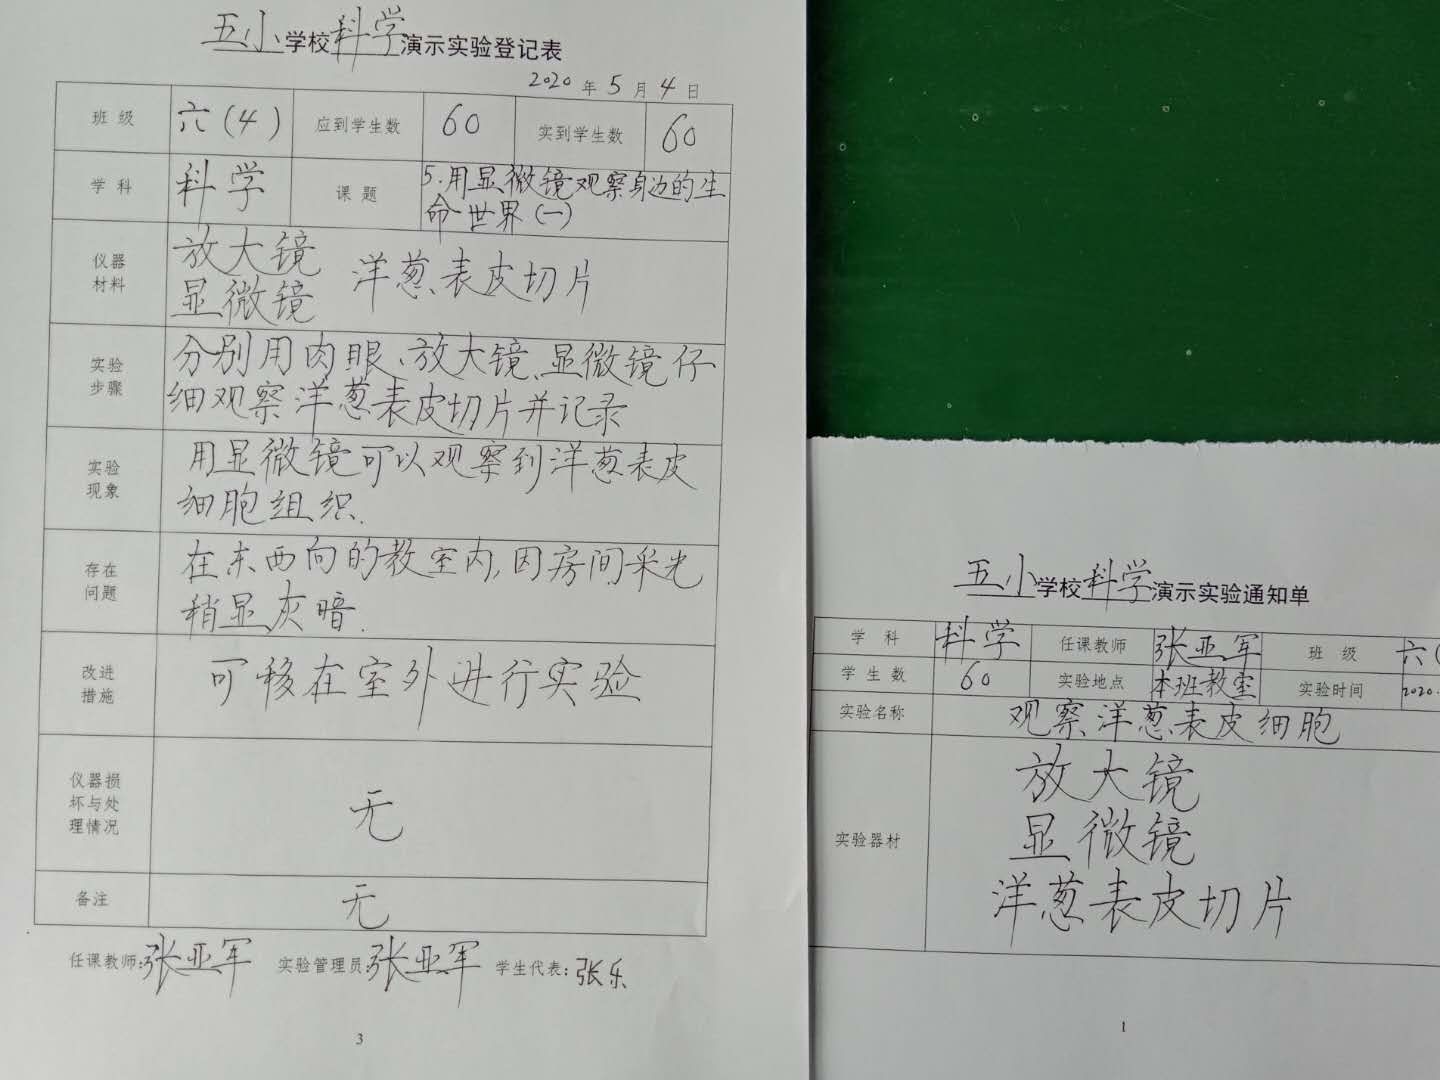 五小学校科学演示实验登记表
2020年5月4日
班级 六(4) 应到学生数 60 实到学生数 60
学科 科学 课题 5.用显微镜观察身边的生
命世界(一)
仪器
材料
放大镜
显微镜 洋葱表皮切片
实验
步骤
分别用肉眼、放大镜、显微镜仔
细观察洋葱表皮切片并记录
实验
现象
用显微镜可以观察到洋葱表皮
细胞组织.
存在
问题
在东西向的教室内,因房间采光
稍显灰暗.
改进
措施
可移在室外进行实验
仪器损
坏与处
理情况
无
备注 无
任课教师:张亚军 实验管理员:张亚军 学生代表:张乐
3
五小学校科学演示实验通知单
学科 科学 任课教师 张亚军 班级 六(
学生数 60 实验地点 本班教室 实验时间 2020.
实验名称 观察洋葱表皮细胞
实验器材
放大镜
显微镜
洋葱表皮切片
1